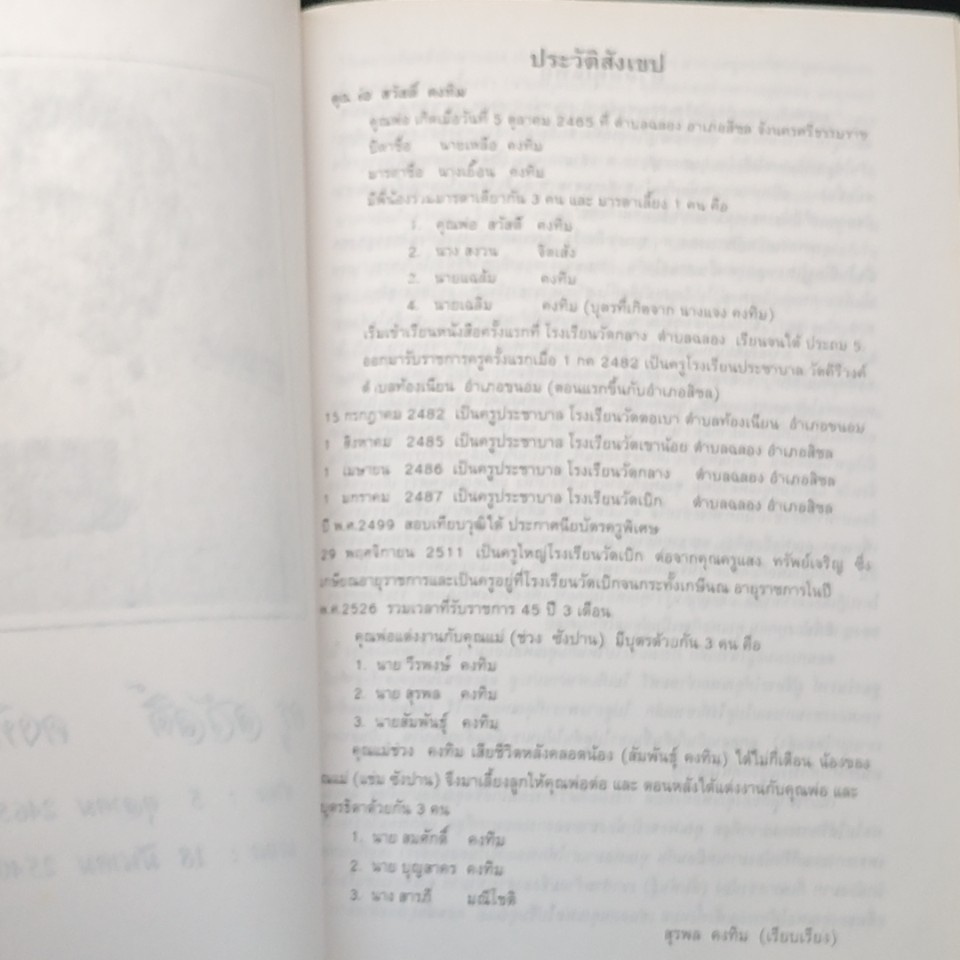 ประวัติสังเขป
คุณ พ่อ สวัสดิ์ คงทิม
คุณพ่อ เกิดเมื่อวันที่ 5 ตุลาคม 2465 ที่ ตำบลฉลอง อำเภอสิชล จังนครศรีธรรมราช
บิดาชื่อ นายเหลือ คงทิม
มารดาชื่อ นางเอื้อน คงทิม
มีพี่น้องร่วมมารดาเดียวกัน 3 คน และ มารดาเลี้ยง 1 คน คือ
1. คุณพ่อ สวัสดิ์ คงทิม
2. นาง สงวน จิตเส้ง
3. นายแฉล้ม คงทิม
4. นายเฉลิม คงทิม (บุตรที่เกิดจาก นางแจ่ง คงทิม)
เริ่มเข้าเรียนหนังสือครั้งแรกที่ โรงเรียนวัดกลาง ตำบลฉลอง เรียนจนได้ ประถม 5
ออกมารับราชการครูครั้งแรกเมื่อ 1 กค 2482 เป็นครูโรงเรียนประชาบาล วัดคีรีวงศ์
ตำบลท้องเนียน อำเภอขนอม (ตอนแรกขึ้นกับอำเภอสิชล)
15 กรกฎาคม 2482 เป็นครูประชาบาล โรงเรียนวัดตอเบา ตำบลท้องเนียน อำเภอขนอม
1 สิงหาคม 2485 เป็นครูประชาบาล โรงเรียนวัดเขาน้อย ตำบลฉลอง อำเภอสิชล
1 เมษายน 2486 เป็นครูประชาบาล โรงเรียนวัดกลาง ตำบลฉลอง อำเภอสิชล
1 มกราคม 2487 เป็นครูประชาบาล โรงเรียนวัดเบิก ตำบลฉลอง อำเภอสิชล
ปี พ.ศ.2499 สอบเทียบวุฒิได้ ประกาศนียบัตรครูพิเศษ
29 พฤศจิกายน 2511 เป็นครูใหญ่โรงเรียนวัดเบิก ต่อจากคุณครูแสง ทรัพย์เจริญ ซึ่ง
เกษียณอายุราชการและเป็นครูอยู่ที่โรงเรียนวัดเบิกจนกระทั้งเกษียณ อายุราชการในปี
พ.ศ.2526 รวมเวลาที่รับราชการ 45 ปี 3 เดือน
คุณพ่อแต่งงานกับคุณแม่ (ช่วง ซังปาน) มีบุตรด้วยกัน 3 คน คือ
1. นาย วีรพงษ์ คงทิม
2. นาย สุรพล คงทิม
3. นายสัมพันธุ์ คงทิม
คุณแม่ช่วง คงทิม เสียชีวิตหลังคลอดน้อง (สัมพันธุ์ คงทิม) ได้ไม่กี่เดือน น้องของ
คุณแม่ (แช่ม ซังปาน) จึงมาเลี้ยงลูกให้คุณพ่อต่อ และ ตอนหลังได้แต่งงานกับคุณพ่อ และ
บุตรธิดาด้วยกัน 3 คน
1. นาย สมศักดิ์ คงทิม
2. นาย บุญสาคร คงทิม
3. นาง สารภี มณีโชติ
สุรพล คงทิม (เรียบเรียง)